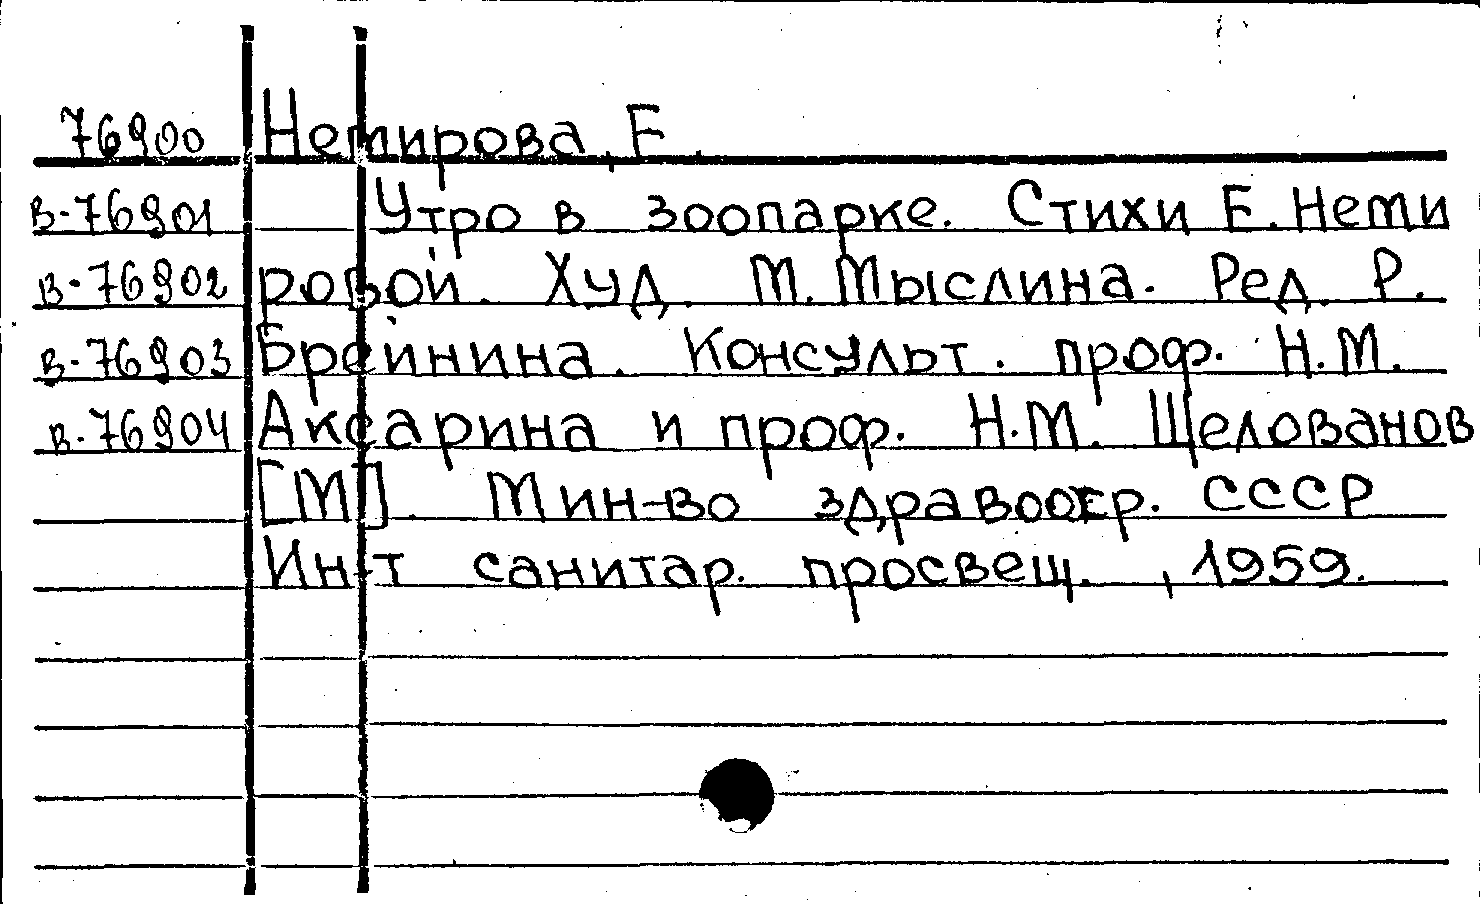 76900 Немирова, Е.
в-76901 Утро в зоопарке. Стихи Е. Неми
в-76902 ровой. Худ. М. Мыслина. Ред. Р.
в-76903 Брейнина. Консульт. проф. Н.М.
в-76904 Аксарина и проф. Н.М. Щелованов
[М]. Мин-во здравоохр. СССР
Ин-т санитар. просвещ., 1959.